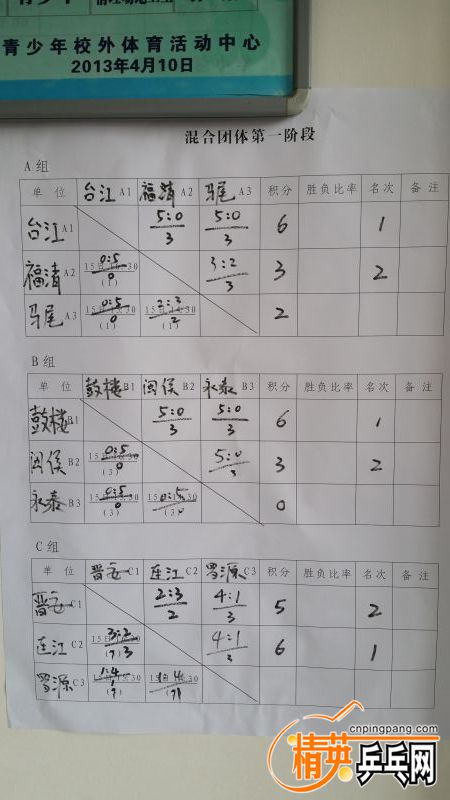 青少年校外体育活动中心
2013年4月10日
混合团体第一阶段
A组
单位 台江A1 福清A2 马尾A3 积分 胜负比率 名次 备注
台江A1 5:0/3 5:0/3 6 1
福清A2 0:5/0 3:2/3 3 2
马尾A3 0:5/0 2:3/2 2
B组
单位 鼓楼B1 闽侯B2 永泰B3 积分 胜负比率 名次 备注
鼓楼B1 5:0/3 5:0/3 6 1
闽侯B2 0:5/0 5:0/3 3 2
永泰B3 0:5/0 0:5/0 0
C组
单位 晋安C1 连江C2 罗源C3 积分 胜负比率 名次 备注
晋安C1 2:3/2 4:1/3 5 2
连江C2 3:2/3 4:1/3 6 1
罗源C3 1:4
cnpingpang.com
精英乒乓网